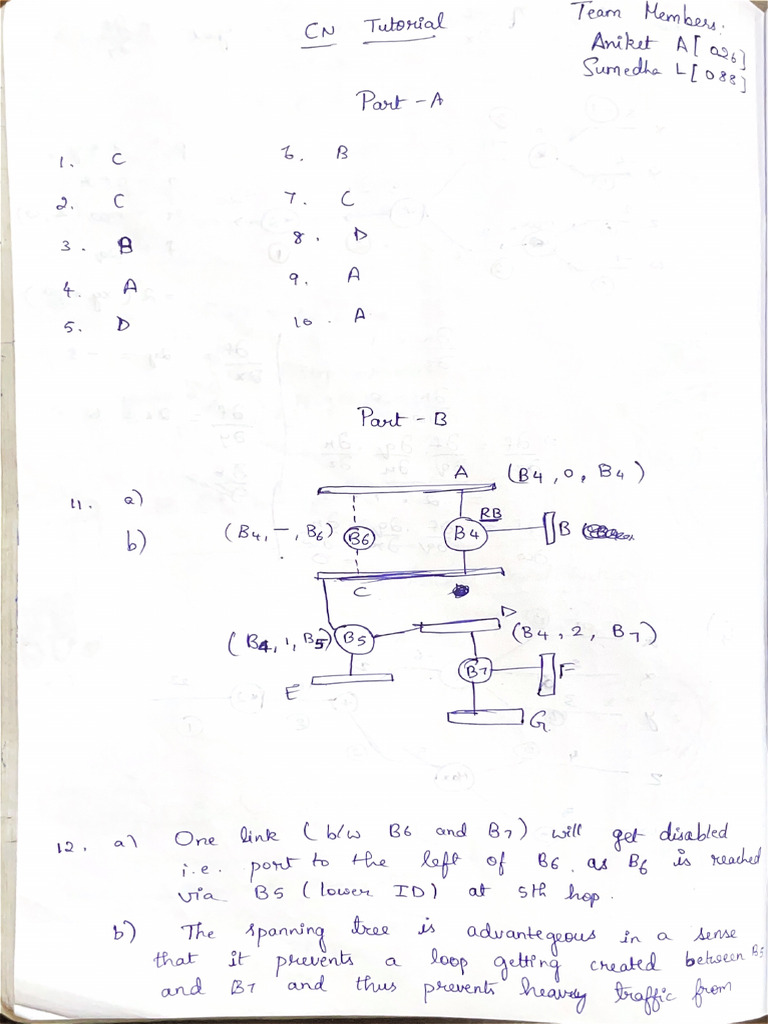 CN Tutorial
Team Members:
Aniket A [026]
Sumedha L [088]
Part - A
1. C
2. C
3. B
4. A
5. D
6. B
7. C
8. D
9. A
10. A
Part - B
11. a)
b)
A (B4, 0, B4)
RB
(B4, -, B6) B6 B4 B
C
D
(B4, 1, B5) B5 (B4, 2, B7)
B7 F
E
G
12. a) One link (b/w B6 and B7) will get disabled
i.e. port to the left of B6. as B6 is reached
via B5 (lower ID) at 5th hop.
b) The spanning tree is advantegeous in a sense
that it prevents a loop getting created between B5
and B7 and thus prevents heavy traffic from